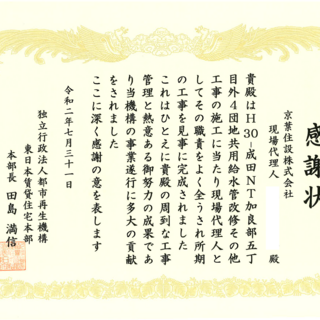 感謝状
京葉住設株式会社
現場代理人
殿
貴殿はH30-成田NT加良部五丁
目外4団地共用給水管改修その他
工事の施工に当たり現場代理人と
してその職責をよく全うされ所期
の工事を見事に完成されました
これはひとえに貴殿の周到な工事
管理と熱意ある御努力の成果であ
り当機構の事業遂行に多大の貢献
をされました
ここに深く感謝の意を表します
令和二年七月三十一日
独立行政法人都市再生機構
東日本賃貸住宅本部
本部長 田島 満信